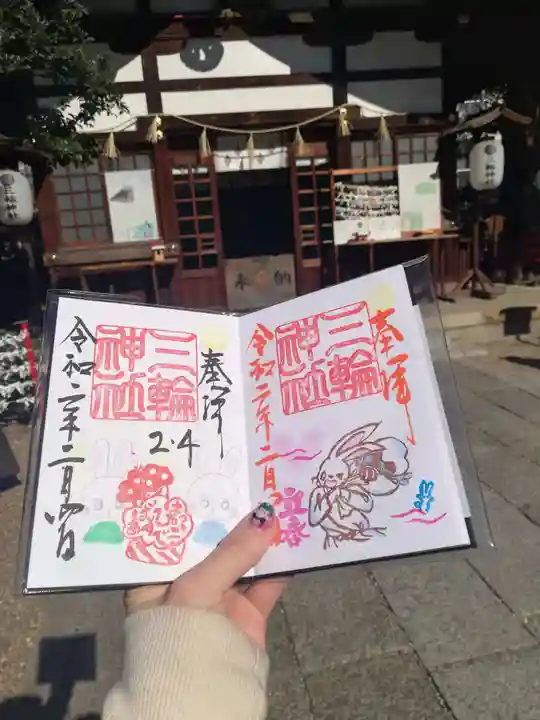 三輪神社
三輪神社
奉納
奉拝
三輪
神社
2.4
令和二年二月四日
奉拝
三輪
神社
立春
令和二年二月